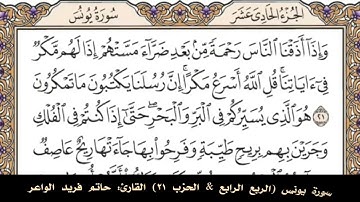 سُورَةُ يُونُسَ
الجُزْءُ الحَادِى عَشَرَ
وَإِذَآ أَذَقْنَا ٱلنَّاسَ رَحْمَةً مِّنۢ بَعْدِ ضَرَّآءَ مَسَّتْهُمْ إِذَا لَهُم مَّكْرٌ
فِىٓ ءَايَاتِنَا ۚ قُلِ ٱللَّهُ أَسْرَعُ مَكْرًا ۚ إِنَّ رُسُلَنَا يَكْتُبُونَ مَا تَمْكُرُونَ
٢١ هُوَ ٱلَّذِى يُسَيِّرُكُمْ فِى ٱلْبَرِّ وَٱلْبَحْرِ ۖ حَتَّىٰٓ إِذَا كُنتُمْ فِى ٱلْفُلْكِ
وَجَرَيْنَ بِهِم بِرِيحٍ طَيِّبَةٍ وَفَرِحُوا۟ بِهَا جَآءَتْهَا رِيحٌ عَاصِفٌ
سورة يونس (الربع الرابع & الحزب ٢١) القارئ: حاتم فريد الواعر